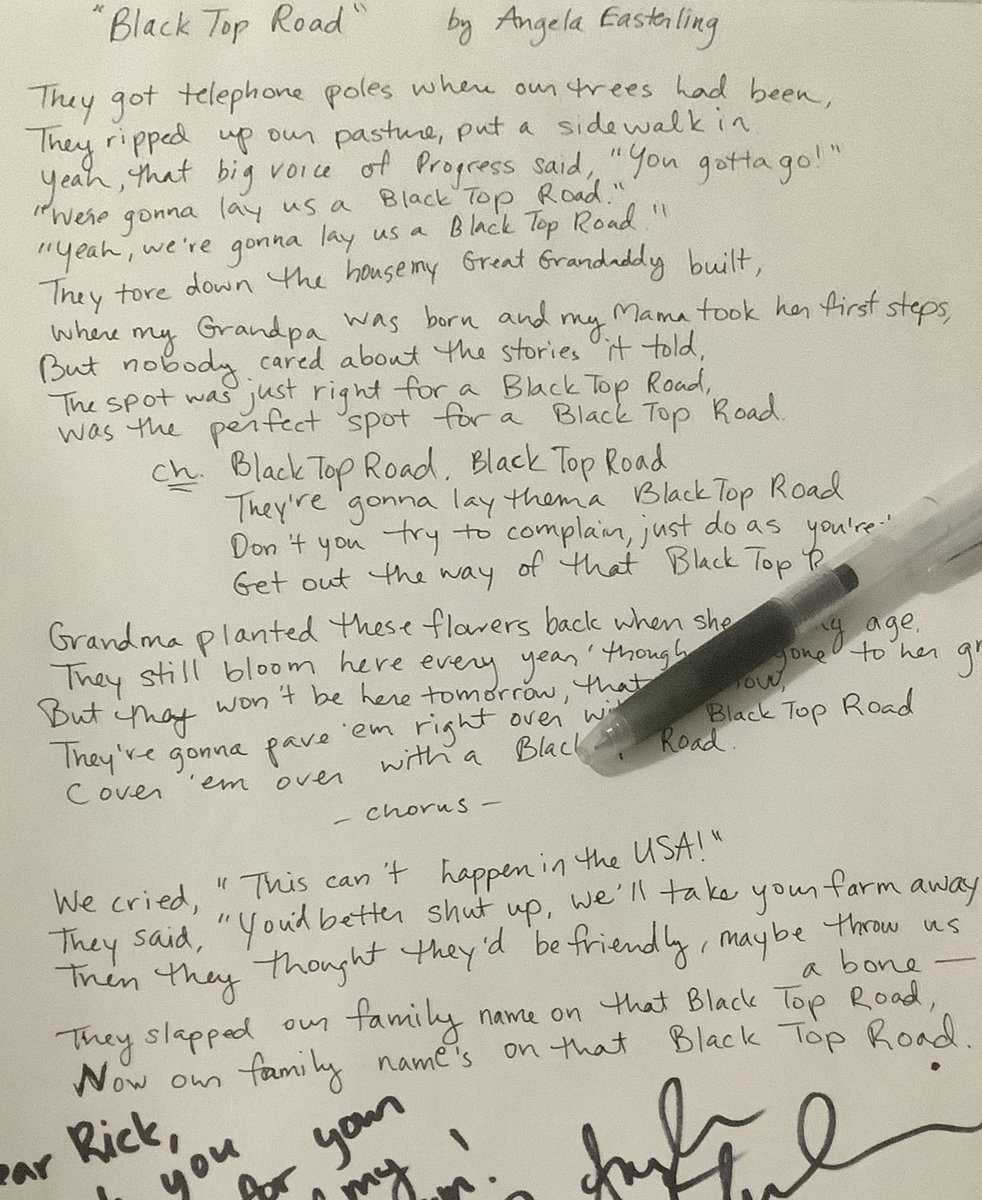 "Black Top Road" by Angela Easterling
They got telephone poles where our trees had been,
They ripped up our pasture, put a sidewalk in
Yeah, that big voice of Progress said, "You gotta go!"
"We're gonna lay us a Black Top Road."
"Yeah, we're gonna lay us a Black Top Road."
They tore down the house my Great Grandaddy built,
Where my Grandpa was born and my Mama took her first steps,
But nobody cared about the stories it told,
The spot was just right for a Black Top Road,
Was the perfect spot for a Black Top Road.
ch. Black Top Road, Black Top Road
They're gonna lay them a Black Top Road
Don't you try to complain, just do as you're
Get out the way of that Black Top R
Grandma planted these flowers back when she age,
They still bloom here every year 'though to her
But they won't be here tomorrow, that
They're gonna pave 'em right over Black Top Road
Cover 'em over with a Black Road.
- chorus -
We cried, "This can't happen in the USA!"
They said, "You'd better shut up, we'll take your farm away
Then they thought they'd be friendly, maybe throw us
a bone —
They slapped our family name on that Black Top Road,
Now our family name's on that Black Top Road.
Rick,
you for your
my